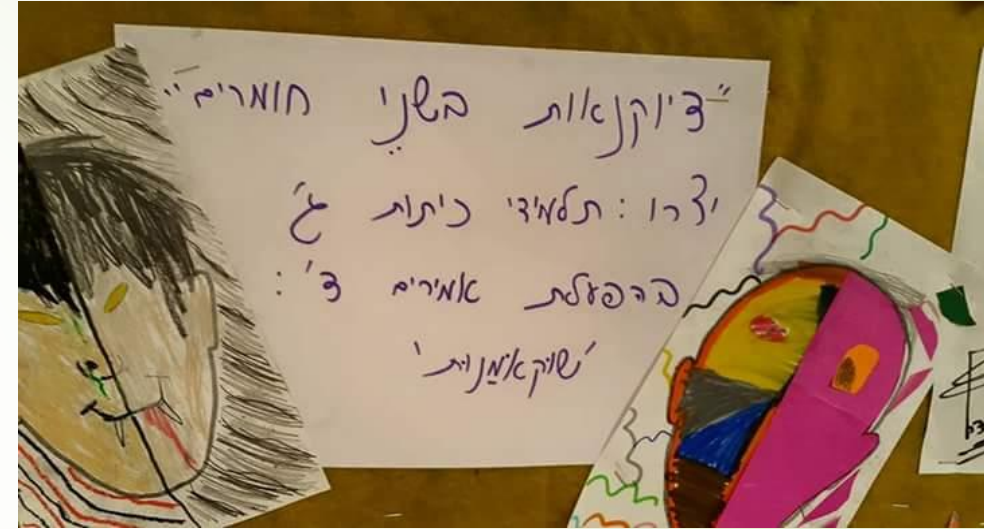 "דיוקנאות בשנֵי חומרים"
יצרו: תלמידי כיתות ג'
בהפעלת אמירים ד':
'שוקאִמַנוּת'